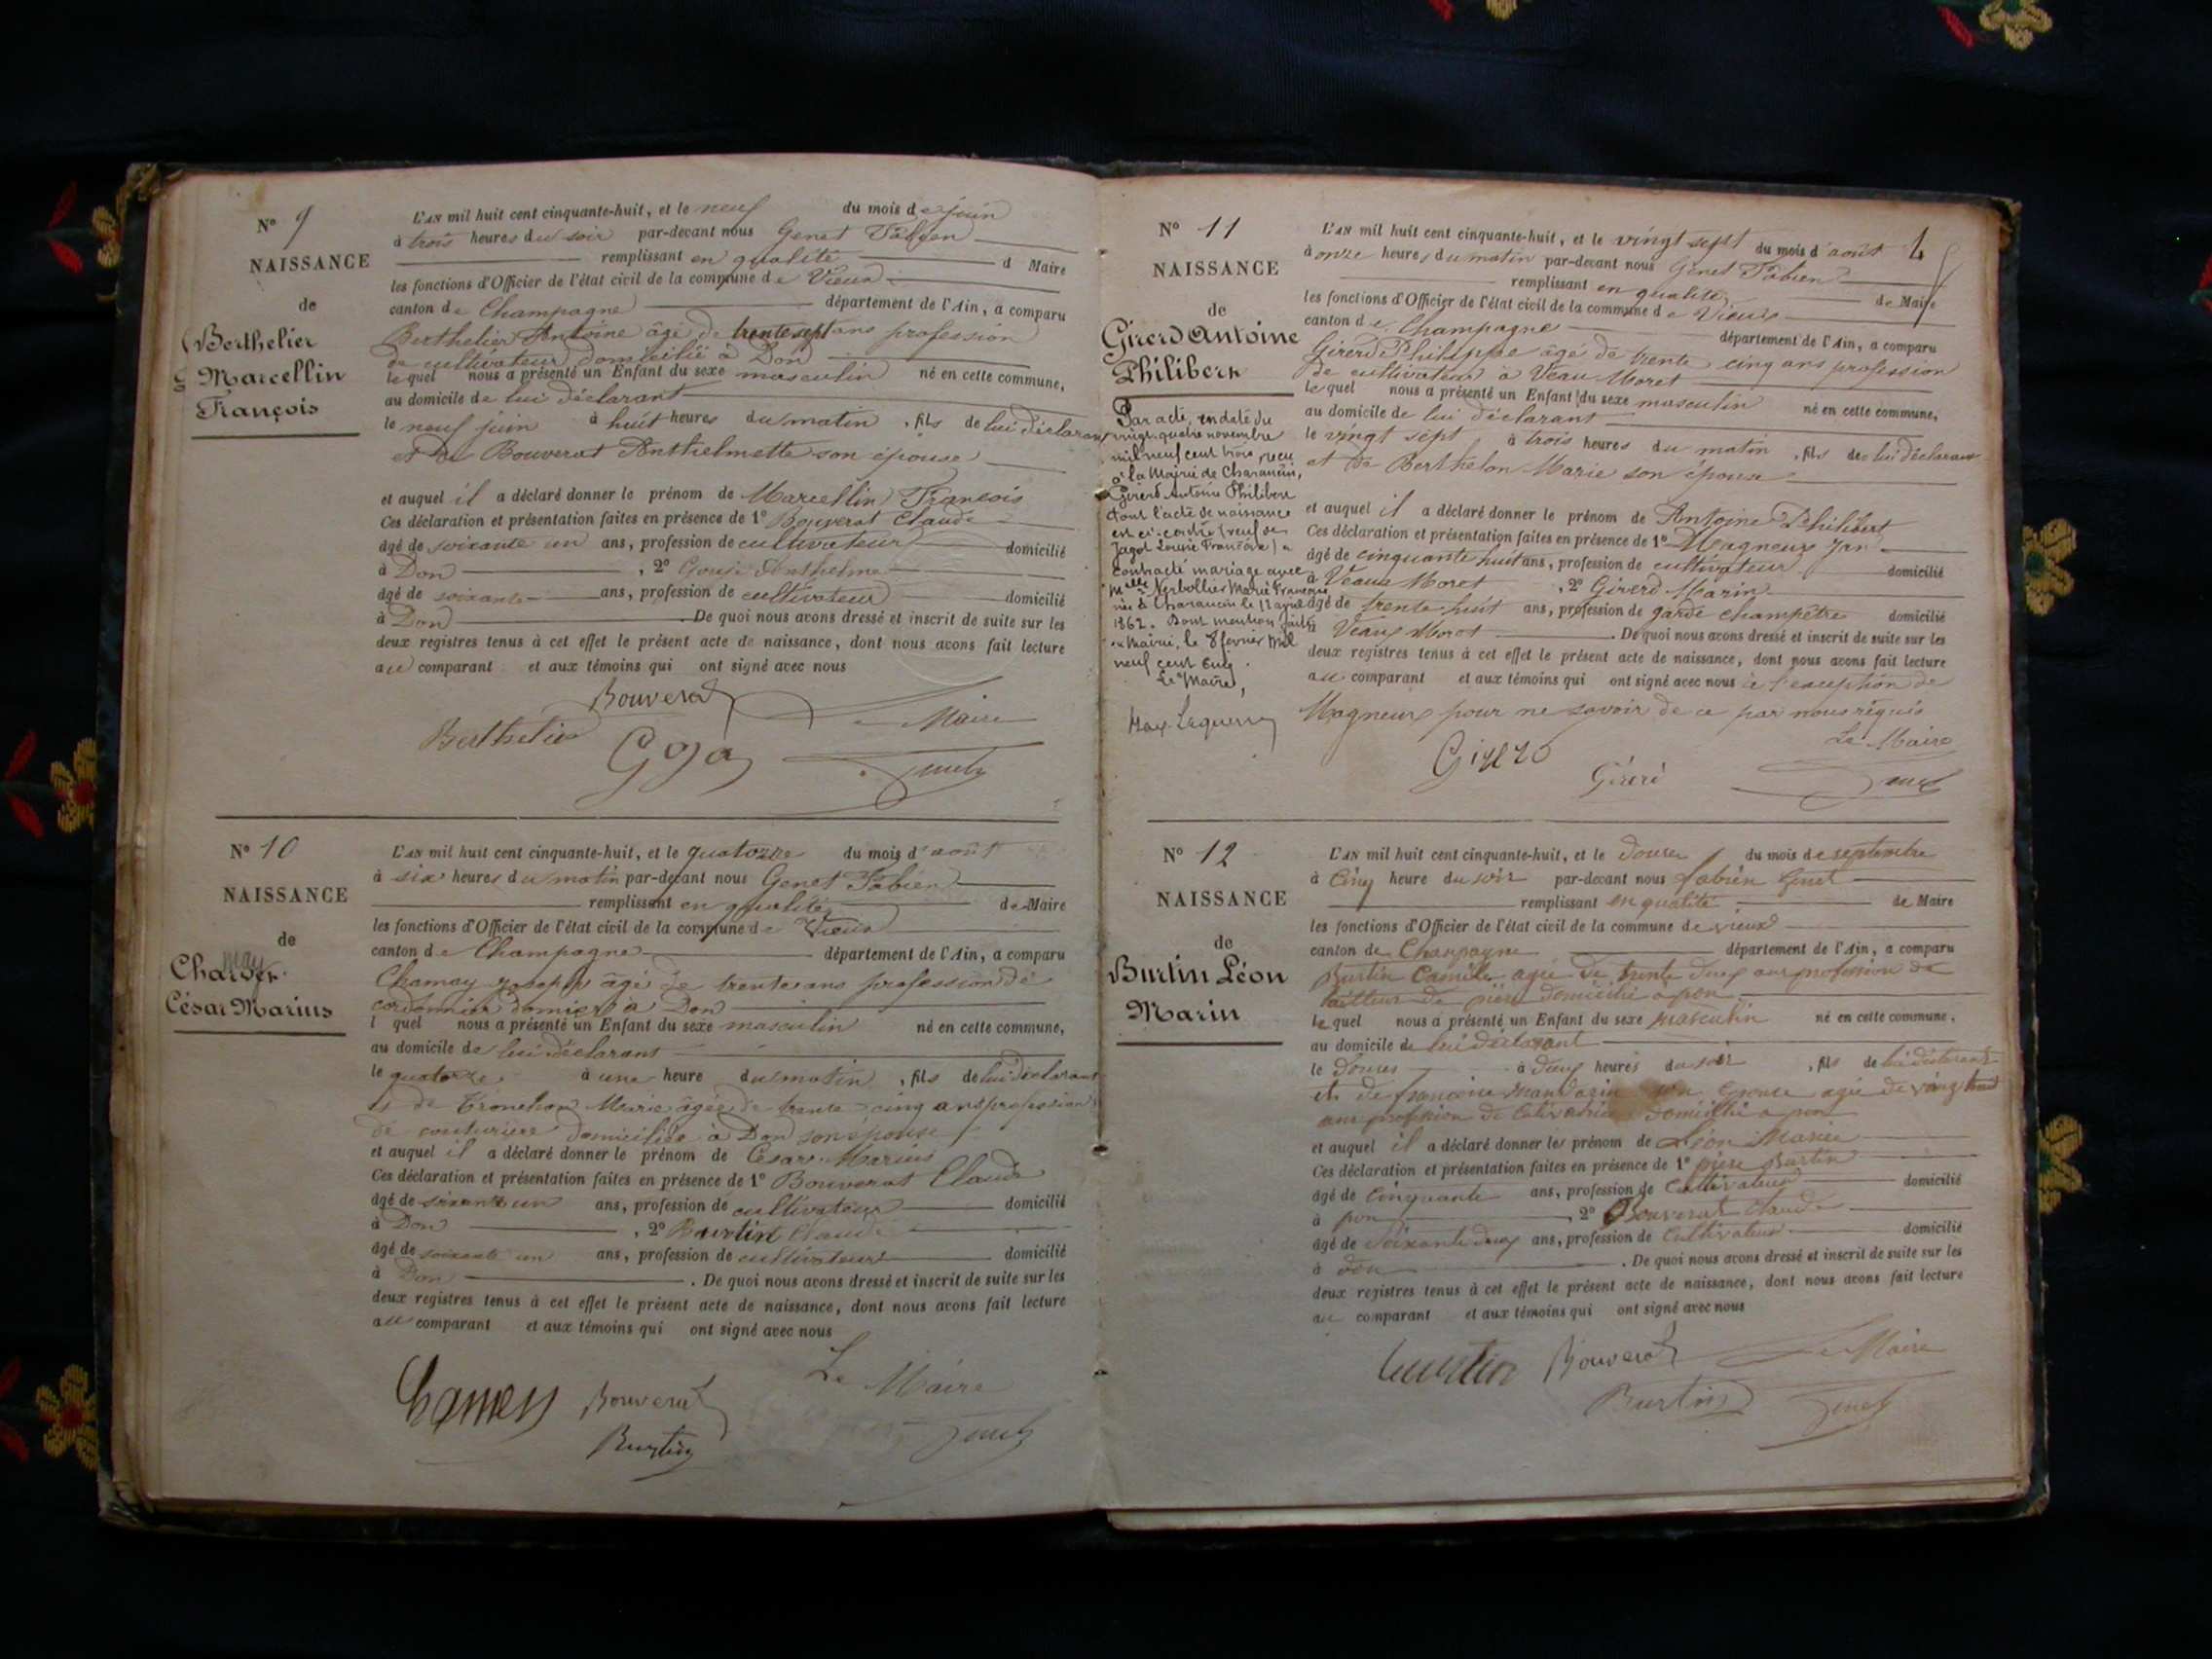 N° 9
NAISSANCE
de
Berthelier
Marcellin
François
L'AN mil huit cent cinquante-huit, et le neuf du mois de juin
à trois heures du soir par-devant nous Genet Fabien
remplissant en qualité d Maire
les fonctions d'Officier de l'état civil de la commune de Vieux
canton de Champagne département de l'Ain, a comparu
Berthelier Antoine âgé de trente sept ans profession
de cultivateur domicilié à Don
lequel nous a présenté un Enfant du sexe masculin né en cette commune,
au domicile de lui déclarant
le neuf juin à huit heures du matin, fils de lui déclarant
et de Bouverat Anthelmette son épouse
et auquel il a déclaré donner le prénom de Marcellin François
Ces déclaration et présentation faites en présence de 1° Bouverat Claude
âgé de soixante un ans, profession de cultivateur domicilié
à Don, 2° Anthelme
âgé de soixante ans, profession de cultivateur domicilié
à Don. De quoi nous avons dressé et inscrit de suite sur les
deux registres tenus à cet effet le présent acte de naissance, dont nous avons fait lecture
au comparant et aux témoins qui ont signé avec nous
Bouverat
Le Maire
Berthelier
Genet
N° 10
NAISSANCE
de
may
Charder
César Marius
L'AN mil huit cent cinquante-huit, et le quatorze du mois d'août
à six heures du matin par-devant nous Genet Fabien
remplissant en qualité de Maire
les fonctions d'Officier de l'état civil de la commune de Vieux
canton de Champagne département de l'Ain, a comparu
Chamay Joseph âgé de trente ans profession de
cordonnier à Don
l quel nous a présenté un Enfant du sexe masculin né en cette commune,
au domicile de lui déclarant
le quatorze à une heure du matin, fils de lui déclarant
et de Marie âgée de trente-cinq ans profession
de couturière domiciliée à Don son épouse
et auquel il a déclaré donner le prénom de César Marius
Ces déclaration et présentation faites en présence de 1° Bouverat Claude
âgé de soixante un ans, profession de cultivateur domicilié
à Don, 2° Burtin Claude
âgé de soixante un ans, profession de cultivateur domicilié
à Don. De quoi nous avons dressé et inscrit de suite sur les
deux registres tenus à cet effet le présent acte de naissance, dont nous avons fait lecture
au comparant et aux témoins qui ont signé avec nous
Le Maire
Bouverat
Burtin
Genet
4
N° 11
NAISSANCE
de
Girerd Antoine
Philibert
Par acte, en date du
vingt-quatre novembre
mil neuf cent trois, reçu
à la Mairie de Charancin,
Girerd Antoine Philibert
dont l'acte de naissance
est ci-contre (veuf de
Jagot Louise Françoise) a
contracté mariage avec
Marie Françoise
née à Charancin le 12 avril
1862. Dont mention faite
en Mairie, le 8 février mil
neuf cent cinq.
Le Maire,
L'AN mil huit cent cinquante-huit, et le vingt sept du mois d'août
à onze heures du matin par-devant nous Genet Fabien
remplissant en qualité de Maire
les fonctions d'Officier de l'état civil de la commune de Vieux
canton de Champagne département de l'Ain, a comparu
Girerd Philippe âgé de trente cinq ans profession
de cultivateur à Veaux Moret
lequel nous a présenté un Enfant du sexe masculin né en cette commune,
au domicile de lui déclarant
le vingt sept à trois heures du matin, fils de lui déclarant
et de Berthelon Marie son épouse
et auquel il a déclaré donner le prénom de Antoine Philibert
Ces déclaration et présentation faites en présence de 1° Magneux
âgé de cinquante huit ans, profession de cultivateur domicilié
à Veaux Moret, 2° Girerd Marin
âgé de trente huit ans, profession de garde champêtre domicilié
à Veaux Moret. De quoi nous avons dressé et inscrit de suite sur les
deux registres tenus à cet effet le présent acte de naissance, dont nous avons fait lecture
au comparant et aux témoins qui ont signé avec nous à l'exception de
Magneux pour ne savoir de ce par nous requis
Le Maire
Girerd
Genet
N° 12
NAISSANCE
de
Burtin Léon
Marin
L'AN mil huit cent cinquante-huit, et le douze du mois de septembre
à Cinq heure du soir par-devant nous fabien Genet
remplissant en qualité de Maire
les fonctions d'Officier de l'état civil de la commune de vieux
canton de Champagne département de l'Ain, a comparu
Burtin Camille agée de trente deux ans profession de
tailleur de domicilié a
lequel nous a présenté un Enfant du sexe masculin né en cette commune,
au domicile de lui déclarant
le douze à deux heures du soir, fils de lui déclarant
et de françoise son épouse agée de
ans profession de domicillié a
et auquel il a déclaré donner les prénom de Léon Marin
Ces déclaration et présentation faites en présence de 1° Burtin
âgé de Cinquante ans, profession de Cultivateur domicilié
à, 2° Bouverat Claude
âgé de Soixante deux ans, profession de Cultivateur domicilié
à don. De quoi nous avons dressé et inscrit de suite sur les
deux registres tenus à cet effet le présent acte de naissance, dont nous avons fait lecture
au comparant et aux témoins qui ont signé avec nous
Bouverat
Le Maire
Burtin
Genet